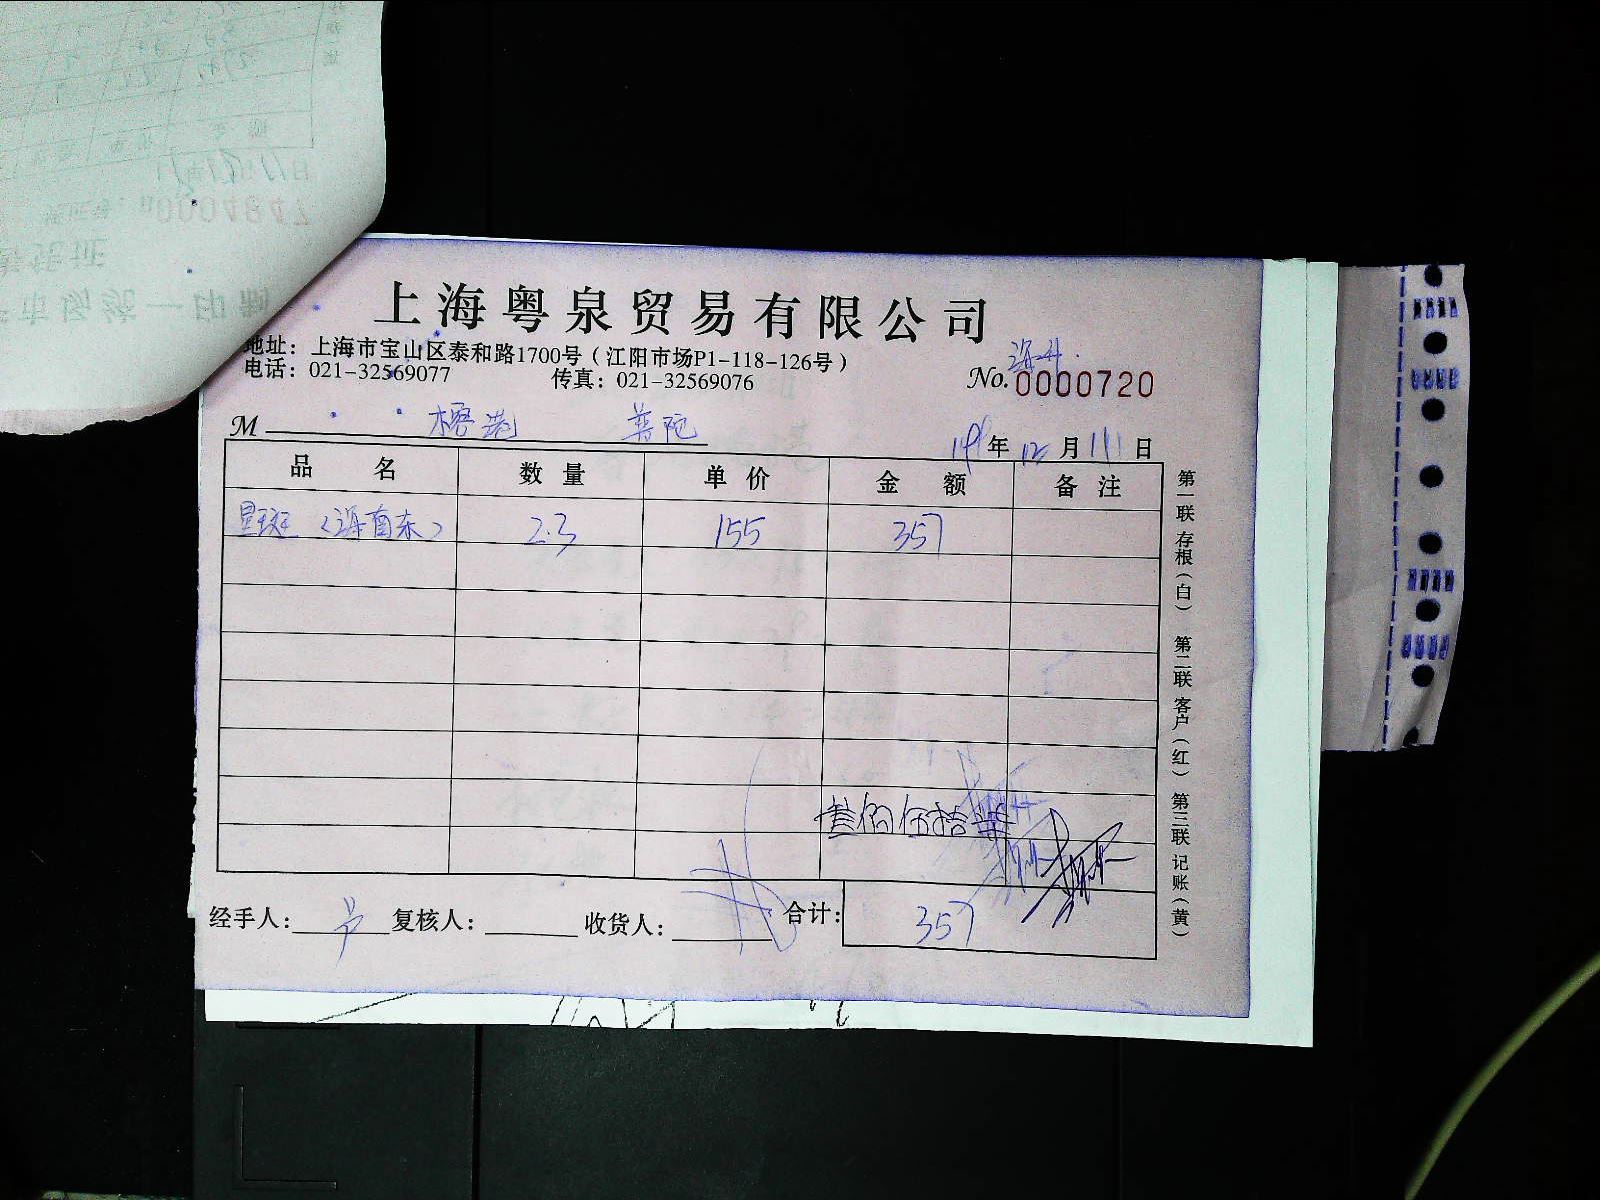 上海粤泉贸易有限公司
地址：上海市宝山区泰和路1700号（江阳市场P1-118-126号）
电话：021-32569077 传真：021-32569076
No.0000720
M 榕港 普陀
年 12 月 11 日
品 名 数 量 单 价 金 额 备 注
星斑（海南东） 2.3 155 357
叁佰伍拾柒
经手人： 复核人： 收货人： 合计：357
第一联 存根（白） 第二联 客户（红） 第三联 记账（黄）